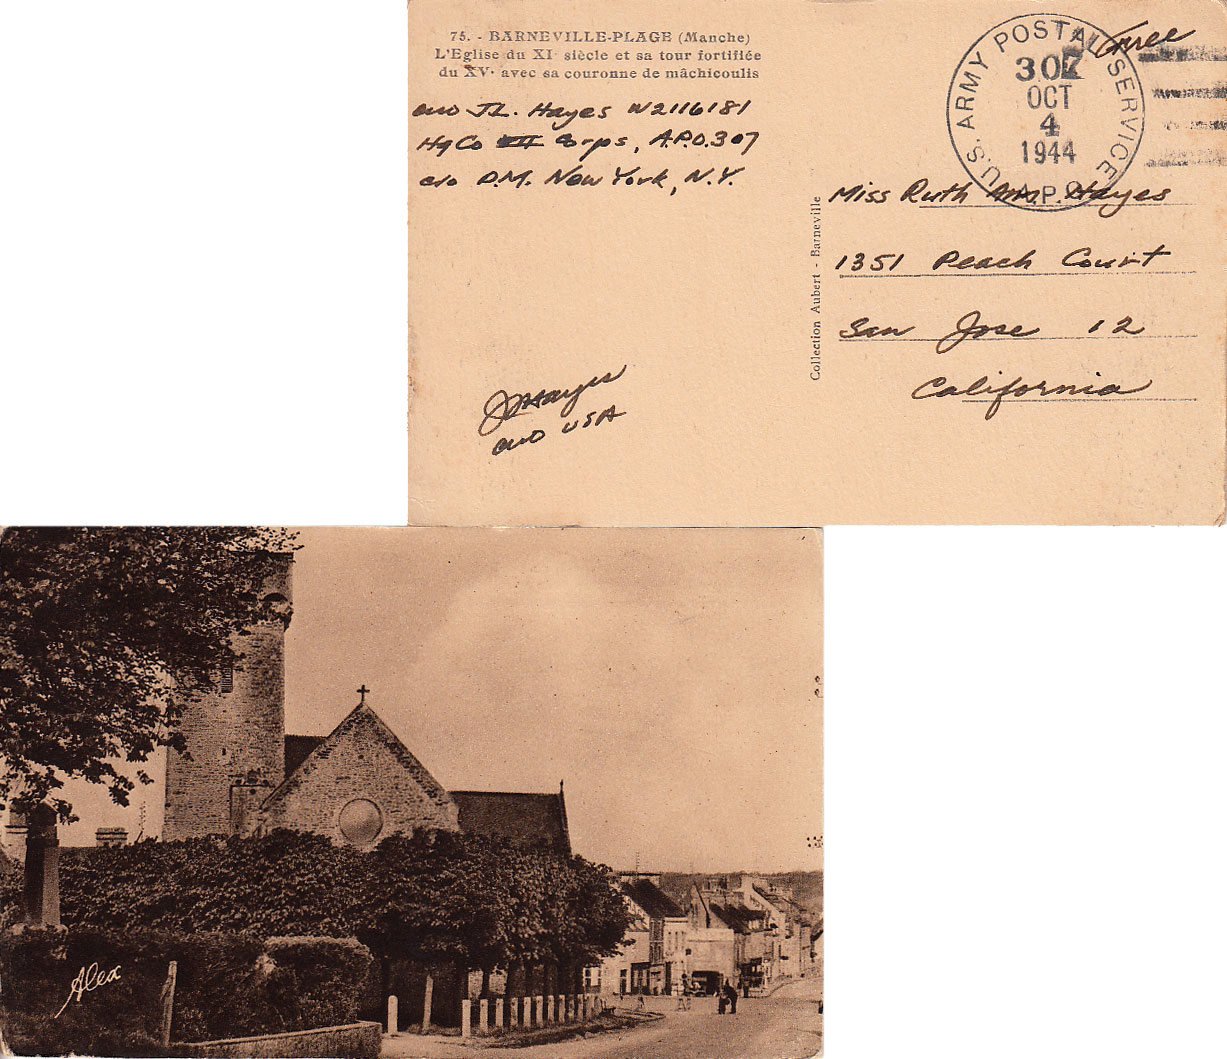 75. - BARNEVILLE-PLAGE (Manche)
L'Eglise du XIe siècle et sa tour fortifiée
du XVe avec sa couronne de mâchicoulis
CWO J.L. Hayes W2116181
Hq Co VII Corps, A.P.O. 307
c/o P.M. New York, N.Y.
JLHayes
CWO USA
Collection Aubert - Barneville
Free
U.S. ARMY POSTAL SERVICE
307
OCT
4
1944
A.P.O.
Miss Ruth Hayes
1351 Peach Court
San Jose 12
California
Alex